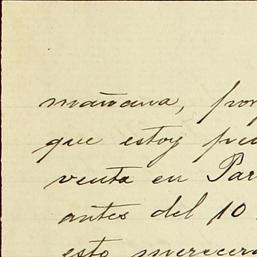 mañana, por
que estoy pre
venta en Par
antes del 10
esto merecer